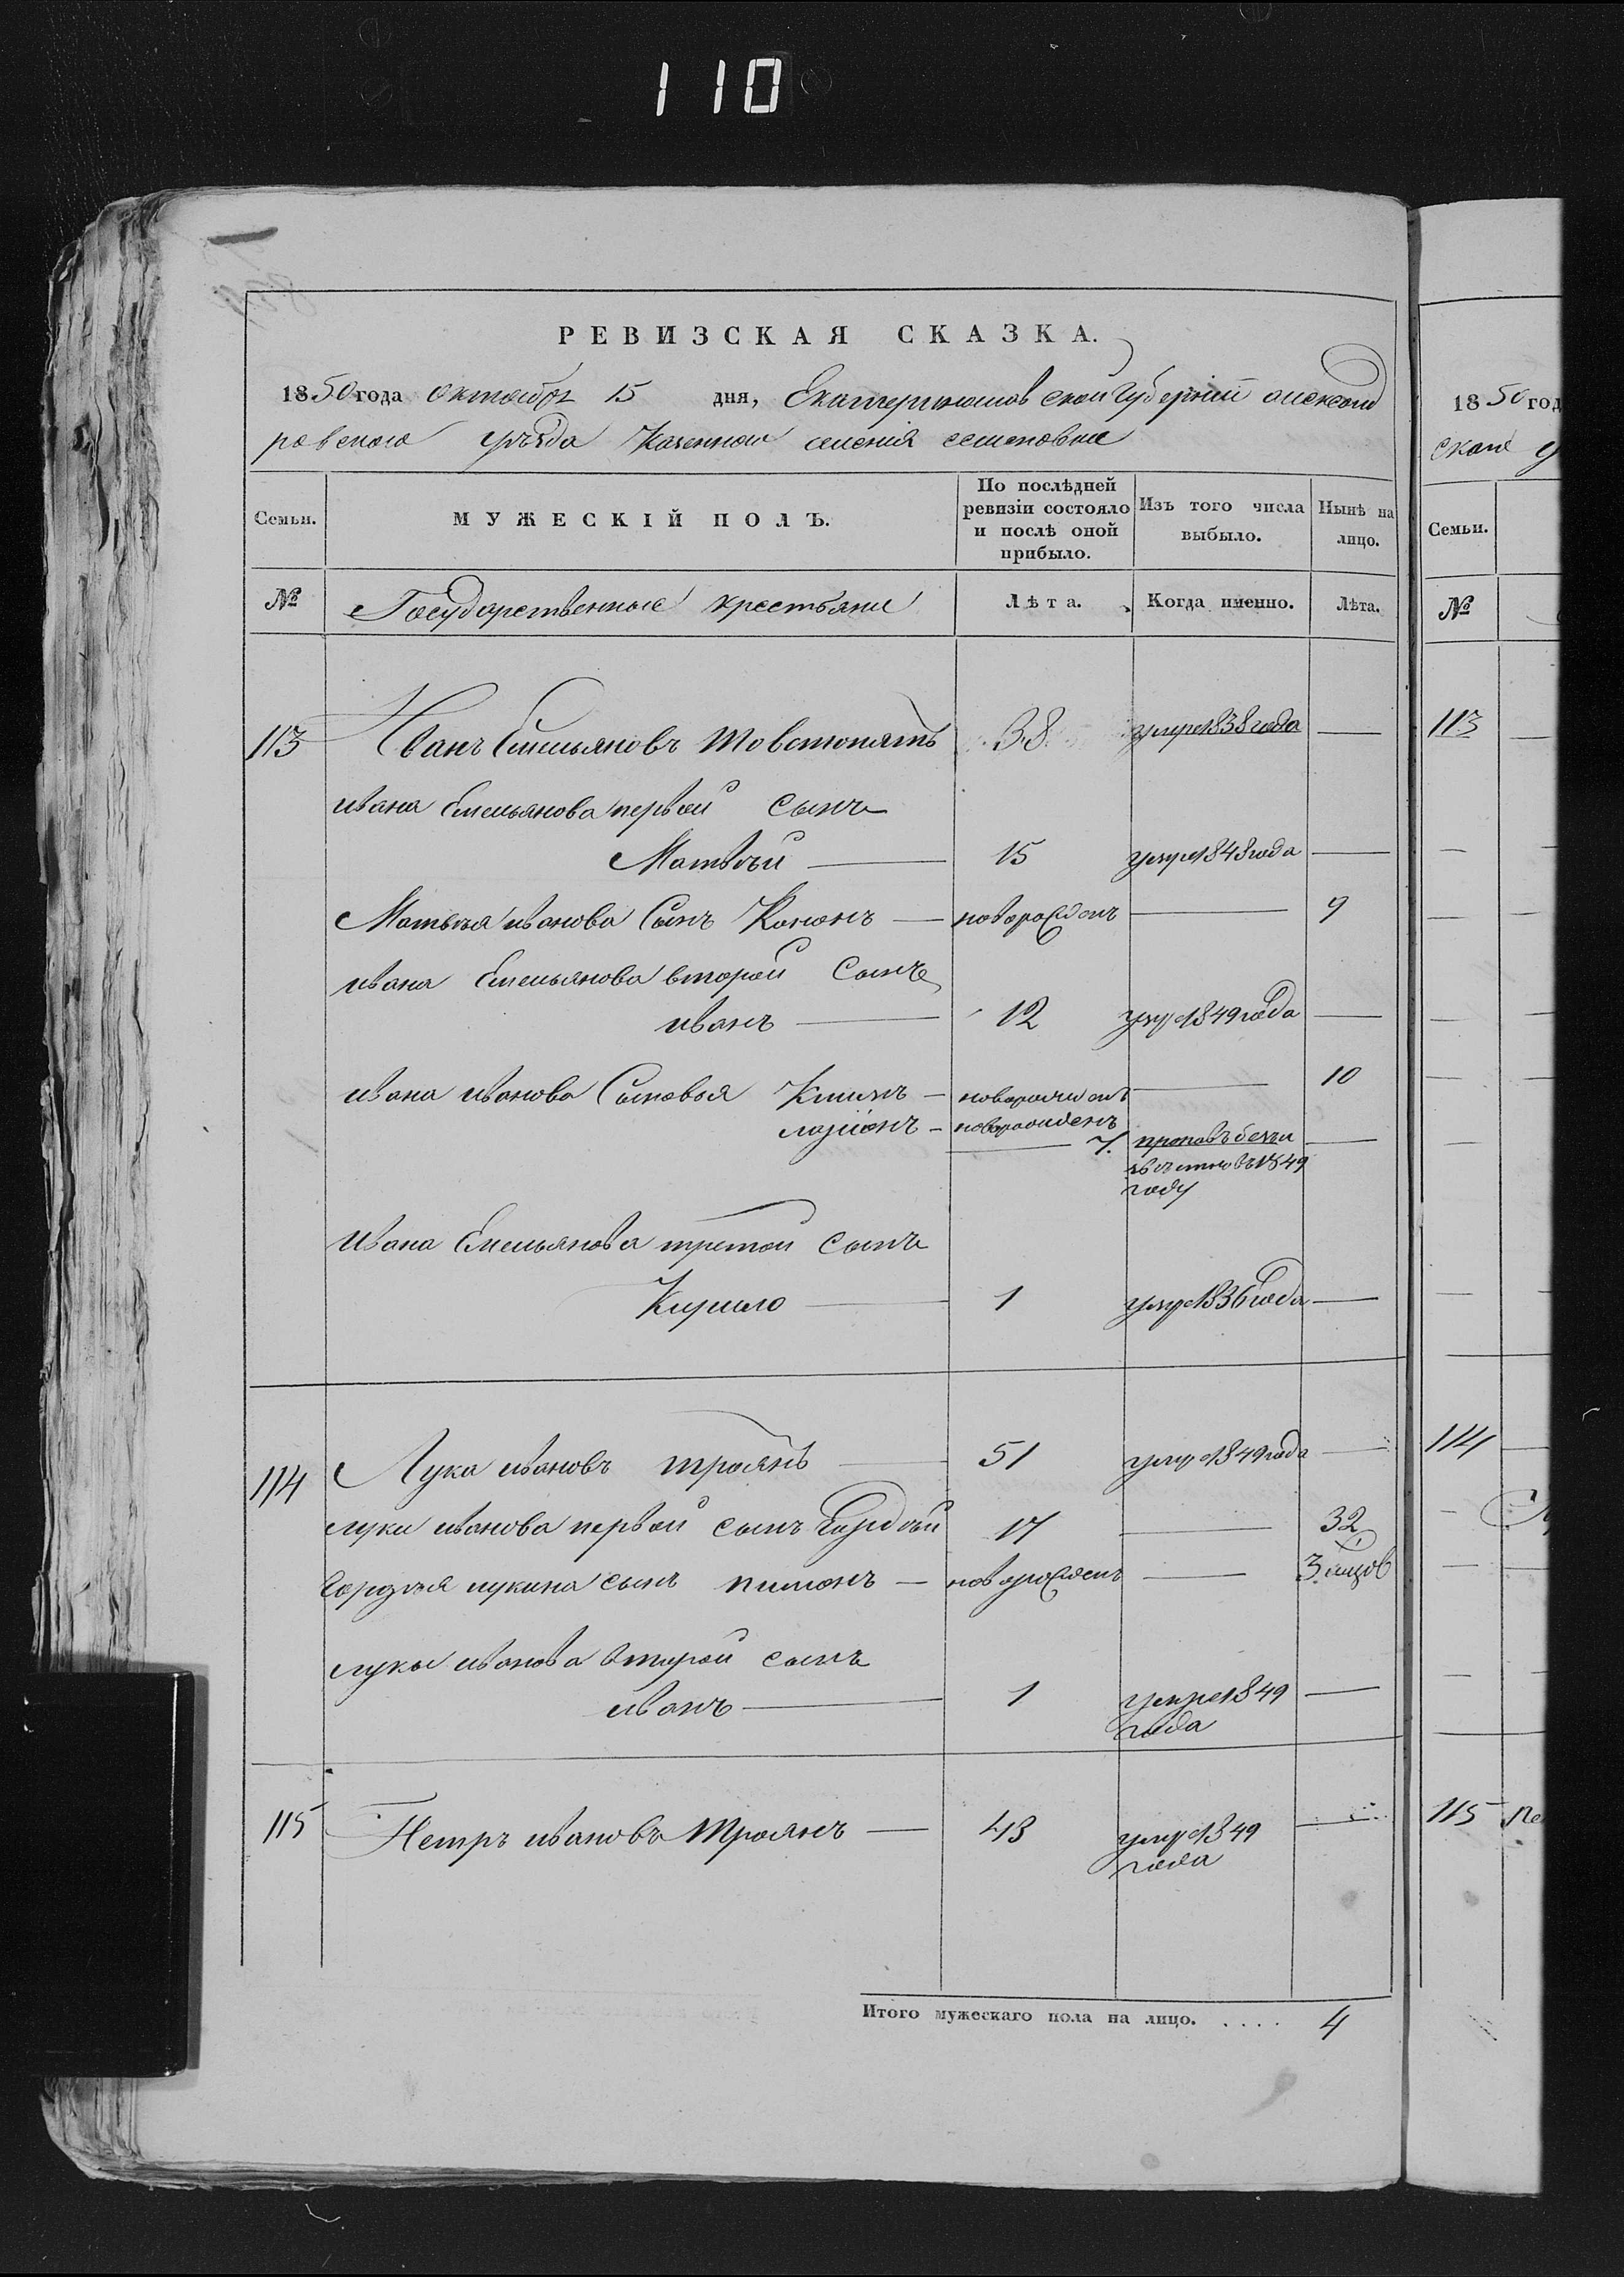 110
РЕВИЗСКАЯ СКАЗКА.
1850 года октября 15 дня, Екатеринославской губернии александ
ровского уѣзда Казенного селения семеновки
Семьи. МУЖЕСКІЙ ПОЛЪ. По послѣдней ревизіи состояло и послѣ оной прибыло. Изъ того числа выбыло. Нынѣ на лицо.
№ Государственные крестьяни Лѣта. Когда именно. Лѣта.
113 Иванъ Емельяновъ Товстопятъ 38 умре 1838 года —
ивана Емельянова первой сынъ
Матвѣй — 15 умре 1848 года —
Матвѣя иванова Сынъ Кононъ — новорожденъ — 9
ивана Емельянова второй Сынъ
иванъ — 12 умре 1849 года —
ивана иванова Сыновья Климъ — новорожденъ — 10
ларионъ — новорожденъ
7. пропавъ безъи —
звѣстно въ 1849
году
Ивана Емельянова третой сынъ
Кирило — 1 умре 1836 года —
114 Лука ивановъ троянъ — 51 умре 1849 года —
луки иванова первой сынъ Гордѣй 17 — 32
Гордѣя лукина сынъ пимонъ — новорожденъ — 3 мѣсяцов
луки иванова второй сынъ
иванъ — 1 умре 1849 —
года
115 Петръ ивановъ Троянъ — 43 умре 1849 —
года
Итого мужескаго пола на лицо. . . . . 4
1850 год
ского у
Семьи.
№
113
114
115 Пе